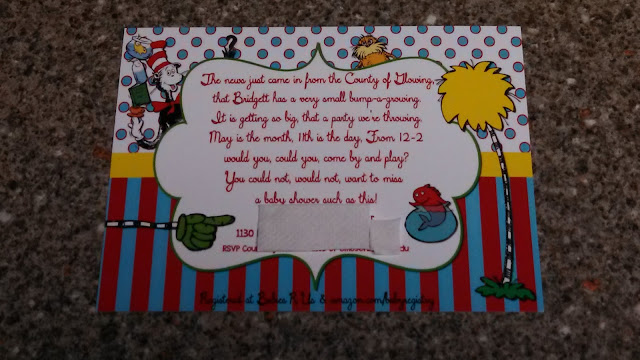 The news just came in from the County of Glowing,
that Bridgett has a very small bump-a-growing.
It is getting so big, that a party we're throwing.
May is the month, 11th is the day, From 12-2
would you, could you, come by and play?
You could not, would not, want to miss
a baby shower such as this!
1130
RSVP
Registered at Babies R Us & amazon.com/babyregistry